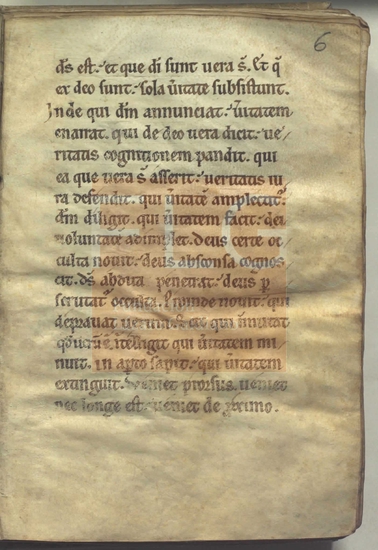 6
dס est. et que di sunt vera s̄. Et q̄
ex deo sunt. sola ūitate subsistunt.
Inde qui dīm annunciat. ūitatem
enarrat. qui de deo vera dicit. ve/
ritatis cognitionem pandit. qui
ea que vera s̄ asserit. veritatis iu
ra defendit. qui ūitatē amplectit᷑.
dīm diligit. qui ūitatem facit. dei
voluntate adimplet. Deus certe oc/
culta novit. deus absconsa cognos
cit. ds̄ abdita penetrat. deus ꝑ
scrutat᷑ occulta. novit. qui
depravat qui
qui ūitatem mi
nuit. sapit. qui ūitatem
extinguit. veniet prorsus. veniet
nec longe est. veniet de ꝓximo.